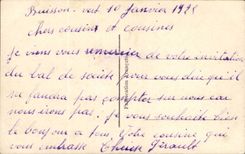 Buisson-vert 10 Janvier 1928
Chers cousins et cousines
Je viens vous remercier de votre invitation
du bal de société pour vous dire qu'il
ne faudra pas compter sur nous car
nous irons pas. Je vous souhaite bien
le bonjour a tous, Votre cousine qui
vous embrasse Thérèse